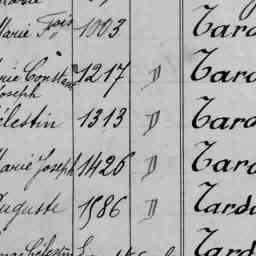 Marie Fois 1003 Tard
Marie Constant Joseph 1217 D Tard
Célestin 1313 D Tard
Marie Joseph 1426 D Tard
Auguste 1586 D Tard
Célestin Tard